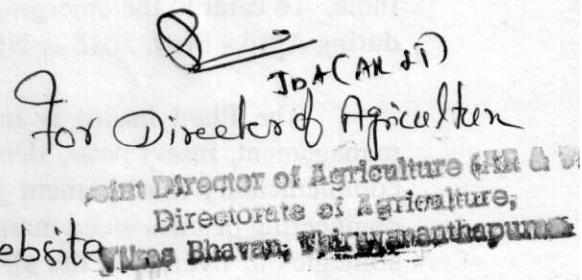 JDA (AR &T)
For Director of Agriculture
Joint Director of Agriculture (AR &
Directorate of Agriculture,
ebsite Vikas Bhavan, Thiruvananthapuram